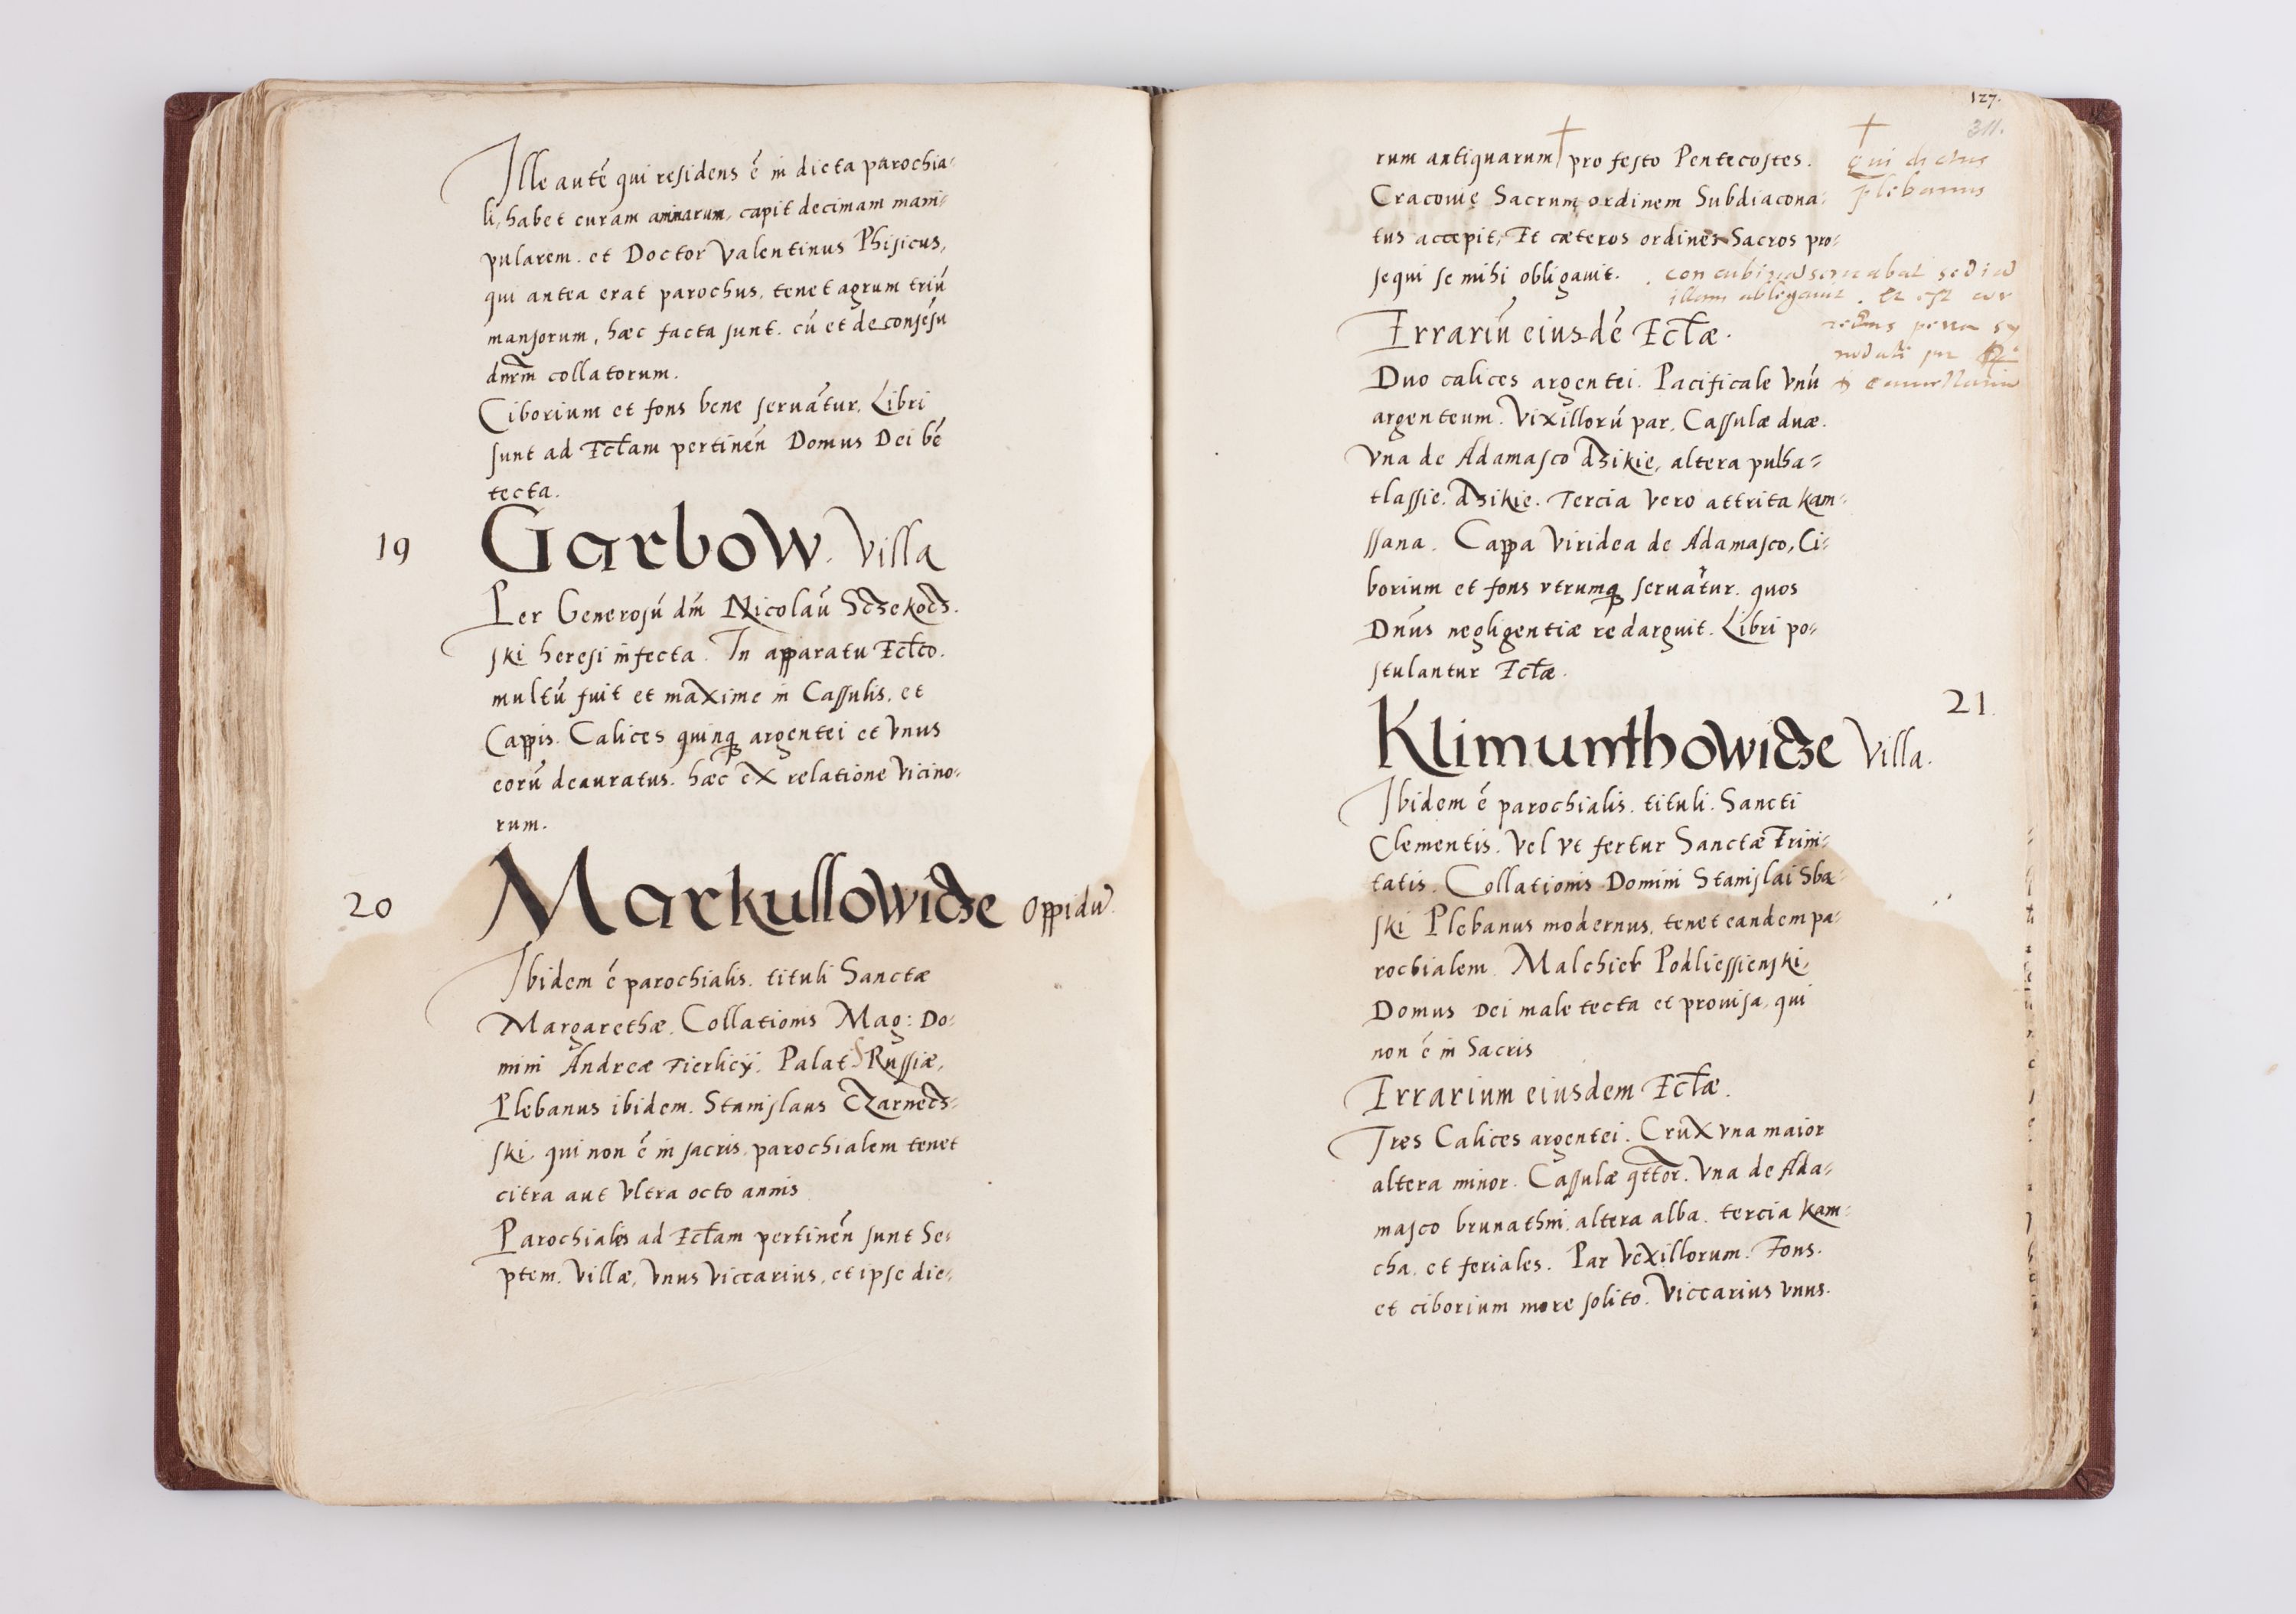 Ille auté qui residens é in dicta parochia-
li, habet curam animarum, capit decimam mani-
pularem. et Doctor Valentinus Phisicus,
qui antea erat parochus, tenet agrum triú
mansorum, hæc facta sunt. cú et de consésu
dnrm collatorum.
Ciborium et fons bene seruátur. Libri
sunt ad Ecłam pertinén Domus Dei bé
tecta.
19 Garbow. Villa
Per Generosú dm̃ Nicolaú Sczekocz-
ski heresi infecta. In apparatu Ecłco.
multú fuit et maxime in Cassulis, et
Cappis. Calices quinq argentei et vnus
eorú deauratus. hæc ex relatione Vicino-
rum.
20 Markussowicze Oppidū.
Ibidem é parochialis. tituli Sanctæ
Margarethæ. Collationis Mag: Do-
mini Andreæ Tierlicÿ. Palat Russiæ,
Plebanus ibidem. Stanislaus Czarnecz-
ski. qui non é in sacris, parochialem tenet
citra aut vltra octo annis
Parochiales ad Ecłam pertinén sunt Se-
ptem. Villæ, vnus Viccarius, et ipse die-
127.
311.
rum antiquarum † pro festo Pentecostes.
† qui dictus
plebanus
Cracouię Sacrum ordinem Subdiacona-
tus accepit, Et cæteros ordines Sacros pro-
sequi se mihi obligauit.
illam ablegauit. et est cor
Errariú eiusdé Ecłæ.
Duo calices argentei. Pacificale vnú
argenteum. Vixillorú par. Cassulæ duæ.
Vna de Adamasco dzikie, altera pulha-
tlassie. dzikie. Tercia vero attrita kam-
ssana. Cappa viridea de Adamasco, Ci-
borium et fons vtrumq seruátur. quos
Dnús negligentiæ redarguit. Libri po-
stulantur Ecłæ.
21.
Klimunthowicze Villa.
Ibidem é parochialis. tituli. Sancti
Clementis. Vel vt fertur Sanctæ Trini-
tatis. Collationis Domini Stanislai Sba-
ski Plebanus modernus, tenet eandem pa-
rochialem Malchier Podliessienski.
Domus Dei male tecta et prouisa, qui
non é in Sacris
Errarium eiusdem Ecłæ.
Tres Calices argentei. Crux vna maior
altera minor. Cassulæ qttor. Vna de Ada-
masco brunathni. altera alba. tercia kam-
cha. et feriales. Par Vexillorum. Fons.
et ciborium more solito. Viccarius vnus.